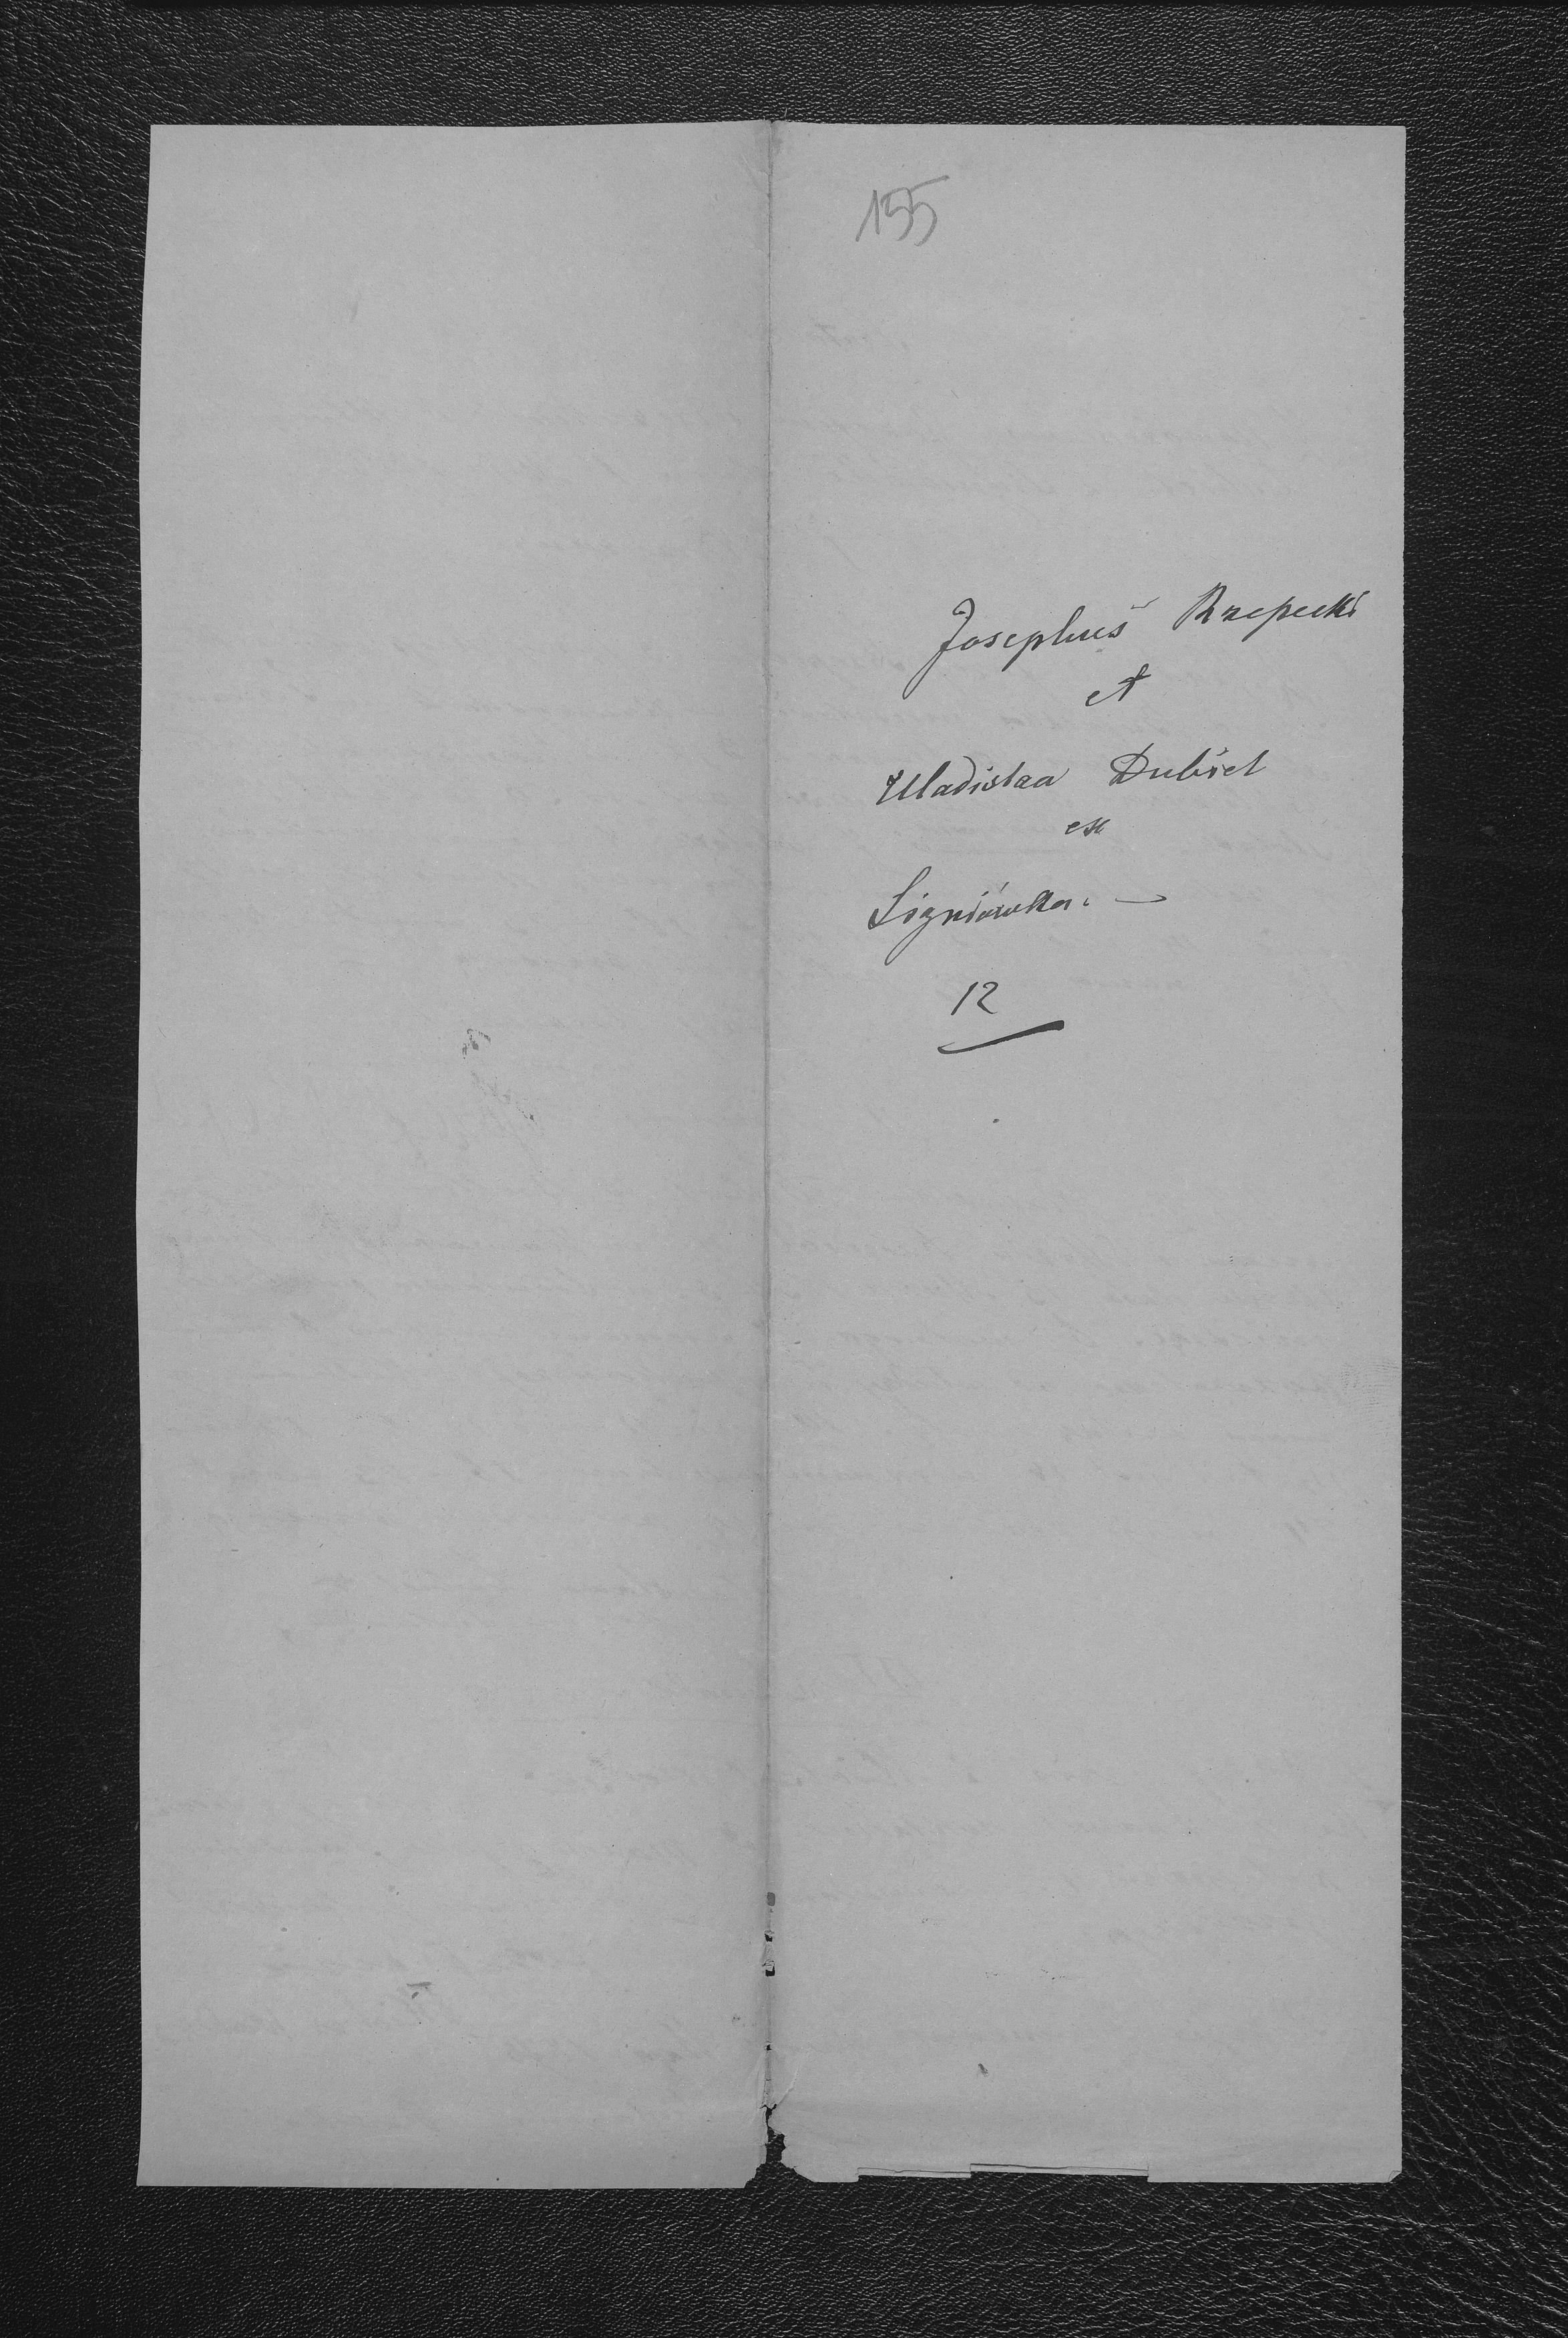 155
Josephus Rzepecki
et
Uladislaa Dubiel
ex
Signiówka. —
12